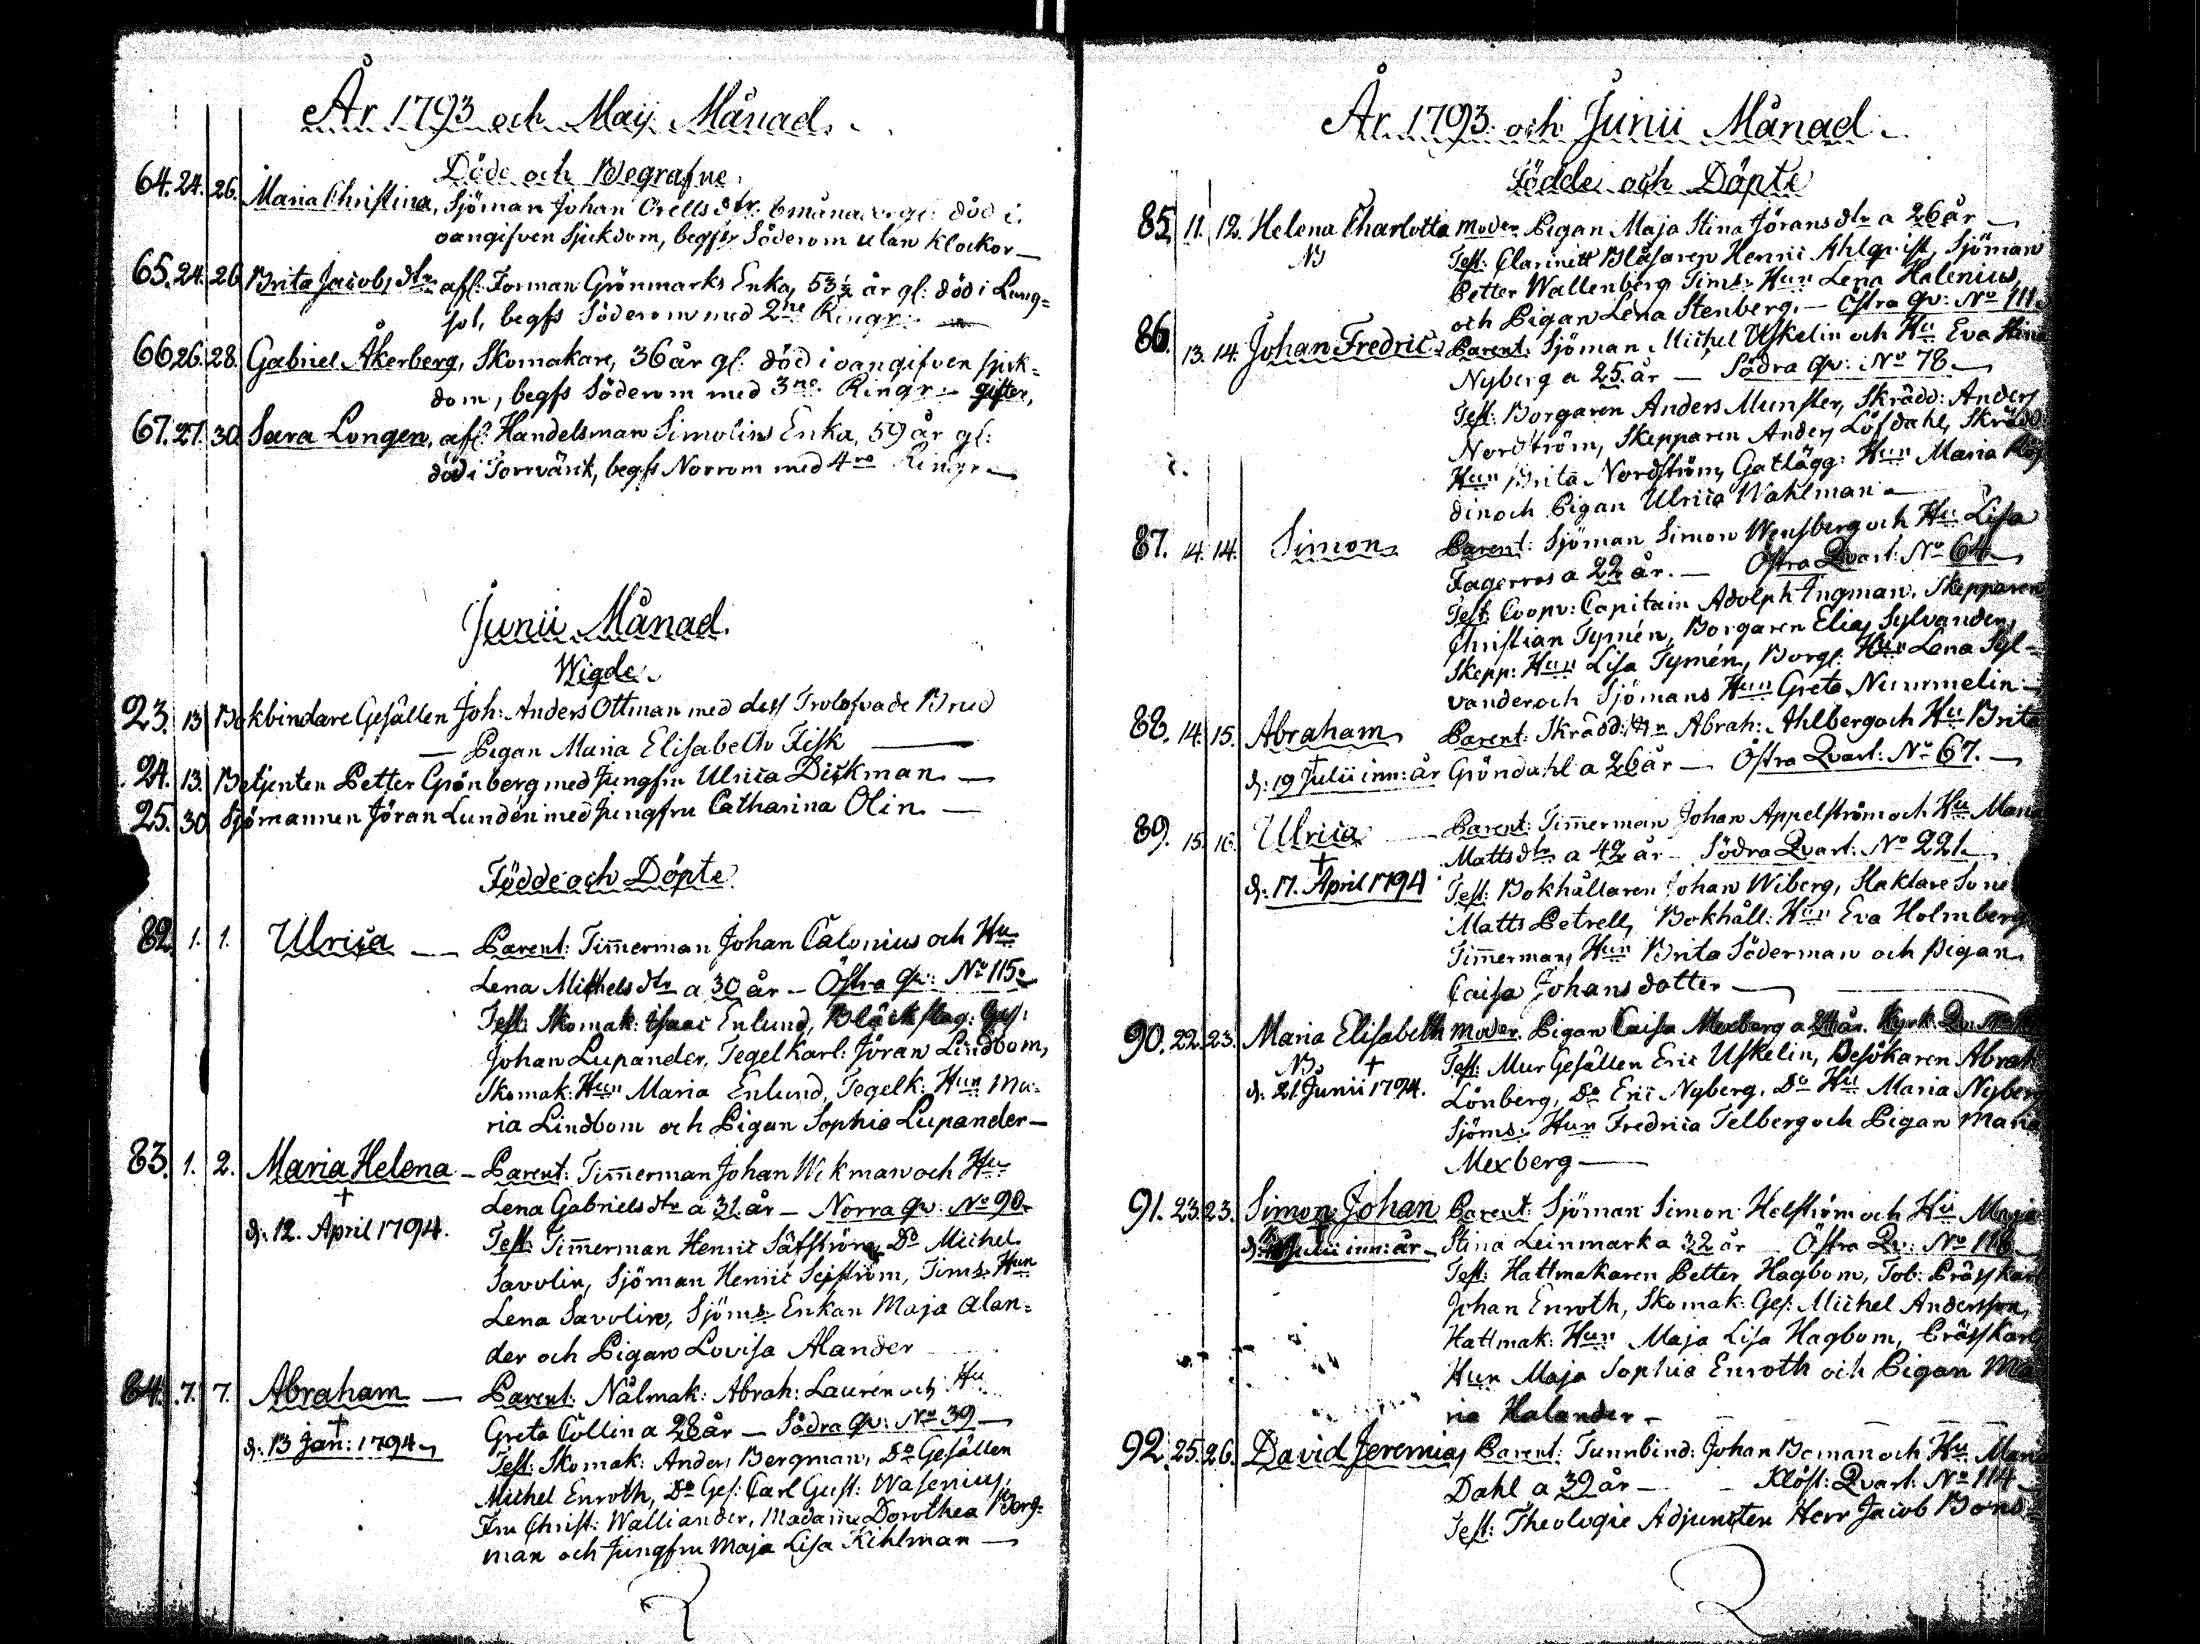 År 1793 och Maij Månad.
Döde och Begrafne.
64. 24. 26. Maria Christina, Sjöman Johan Orells dtr. 6 månader gl: död i
oangifven Sjukdom, begfs Söderom utan Klockor —
65. 24. 26 Brita Jacobs dtr afl: Forman Grönmarks Enka, 53½ år gl: död i Lung=
sot, begfs Söderom med 2ne Ringr:
66 26. 28. Gabriel Åkerberg, Skomakare, 36 år gl: död i oangifven sjuk=
dom, begfs Söderom med 3ne Ringr: — gifter,
67. 27. 30 Sara Longen, afl: Handelsman Simolins Enka, 59 år gl:
död i Torrvärk, begfs Norrom med 4ra Ringr —
Junii Månad.
Wigde.
23. 13 Bokbindare Gesällen Joh: Anders Ottman med dess Trolofvade Brud
— Pigan Maria Elisabeth Fisk —
24. 13. Betjenten Petter Grönberg med Jungfru Ulrica Dickman —
25. 30 Sjömannen Jöran Lundén med Jungfru Catharina Olin —
Födde och Döpte
82. 1. 1. Ulrica — Parent: Timmerman Johan Calonius och Hu
Lena Michels dtr a 30 år — Östra Qv: No 115.
Test: Skomak: Isaac Enlund, Bläckslag: Ges:
Johan Lupander, Tegelkarl: Jöran Lindbom,
Skomak: Hun Maria Enlund, Tegelk: Hun Ma=
ria Lindbom och Pigan Sophia Lupander —
83. 1. 2. Maria Helena — Parent: Timmerman Johan Wikman och Hu
Lena Gabriels dtr a 31 år — Norra Qv: No 90.
† d: 12. April 1794. Test: Timmerman Henric Säfström, Do Michel
Savolin, Sjöman Henric Sejström, Tims: Hun
Lena Savolin, Sjöms Enkan Maja Alan=
der och Pigan Lovisa Alander
84. 7. 7. Abraham — Parent: Nålmak: Abrah: Laurén och Hu
Greta Collin a 28 år — Södra Qv: No 39 —
† d: 13 Jan: 1794 Test: Skomak: Anders Bergman, Do Gesällen
Michel Enroth, Do Ges: Carl Gust: Wasenius,
Fru Christ: Walliander, Madame Dorothea Berg=
man och Jungfru Maja Lisa Kihlman —
År 1793 och Junii Månad.
Födde och Döpte
85. 11. 12. Helena Charlotta Moder Pigan Maja Stina Jörans dtr a 26 år —
NB Test: Clarinett Blåsaren Henric Ahlqvist, Sjöman
Petter Wallenberg Tims: Hun Lena Halenius,
och Pigan Lena Stenberg. — Östra Qv: No 111.
86. 13. 14. Johan Fredric Parent: Sjöman Michel Uskelin och Hu Eva Stina
Nyberg a 25 år — Södra Qv: No 78 —
Test: Borgaren Anders Munster, Skrädd: Anders
Nordström, Skepparen Anders Löfdahl, Skrädd:
Hun Brita Nordström, Gatlägg: Hun Maria
din och Pigan Ulrica Wahlman —
87. 14. 14. Simon Parent: Sjöman Simon Wensberg och Hu Lisa
Fagerros a 22 år. — Östra Qvart: No 64
Test: Coopv: Capitain Adolph Ingman, Skepparen
Christian Tymén, Borgaren Elias Sylvander,
Skepp: Hun Lisa Tymén, Borg: Hun Lena Syl=
vander och Sjömans Hun Greta Nummelin —
88. 14. 15. Abraham Parent: Skrädd: Abrah: Ahlberg och Hu Brita
† d: 19 Julii inn: år Gröndahl a 26 år — Östra Qvart: No 67. —
89. 15. 16. Ulrica — Parent: Timmerman Johan Appelström och Hu Maria
Matts dtr a 42 år — Södra Qvart: No 221
† d: 17. April 1794 Test: Bokhållaren Johan Wiberg, Slaktare Sone
Matts Petrell, Bokhåll: Hun Eva Holmberg
Timmermans Hun Brita Söderman och Pigan
Caisa Johans dotter —
90. 22. 23. Maria Elisabeth Moder Pigan Caisa Mexberg a 24 år. Kyrk: Qv:
NB † Test: Mur Gesällen Eric Uskelin, Besökaren Abrah
d. 21 Junii 1794. Lönberg, Do Eric Nyberg, Do Hu Maria Nyberg
Sjöms: Hun Fredrica Telberg och Pigan Maria
Mexberg —
91. 23. 23. Simon Johan Parent: Sjöman Simon Helström och Hu Maja
Julii inn: år — Stina Leinmark a 32 år Östra Qv: No 116
Test: Hattmakaren Petter Hagbom, Tob: Prässkarl
Johan Enroth, Skomak: Ges: Michel Andersson,
Hattmak: Hun Maja Lisa Hagbom, Prässkarl
Hun Maja Sophia Enroth och Pigan Ma
ria Halander —
92. 25. 26. David Jeremias Parent: Tunnbind: Johan Boman och Hu Maria
Dahl a 39 år — Klöst: Qvart: No 114
Test: Theologie Adjuncten Herr Jacob Bons=